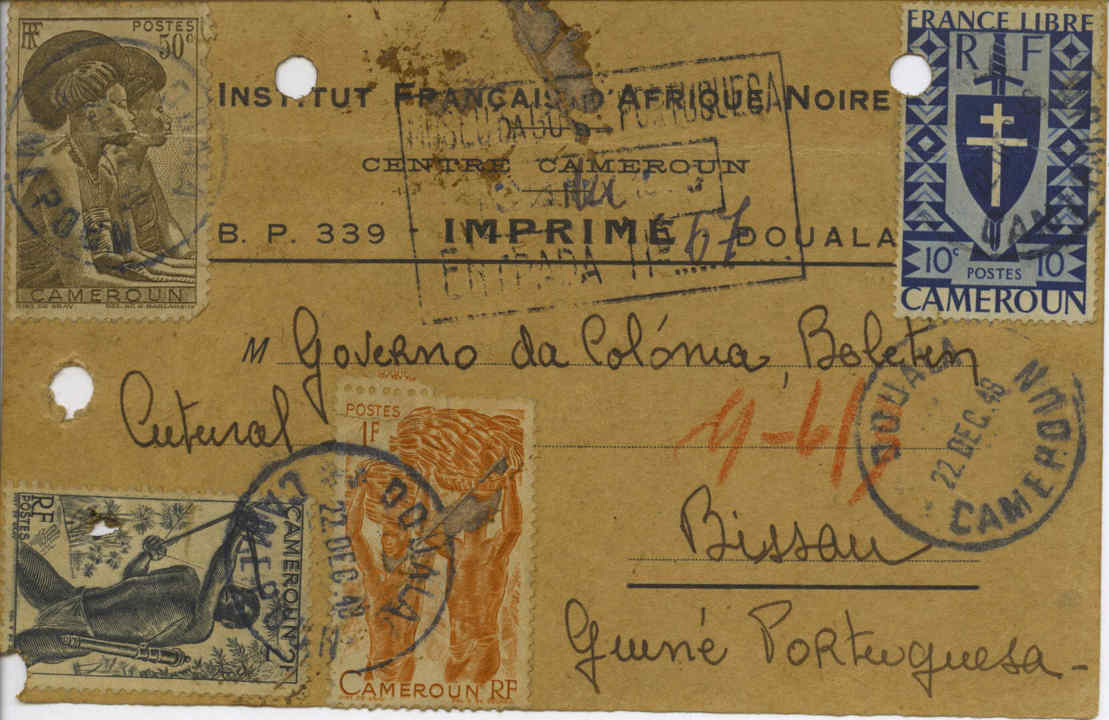 RF
POSTES
50c
CAMEROUN
FRANCE LIBRE
RF
10c POSTES 10
CAMEROUN
INSTITUT FRANÇAIS D'AFRIQUE NOIRE
CENTRE CAMEROUN
B. P. 339 - IMPRIMÉ - DOUALA
PORTUGUESA
ENTRADA
67
M Governo da Colónia, Boletin
Cutural
Bissau
Guiné Portuguesa -
DOUALA
22 DEC. 48
CAMEROUN
POSTES
1F
CAMEROUN RF
DOUALA
22 DEC 48
RF
POSTES
CAMEROUN 2F